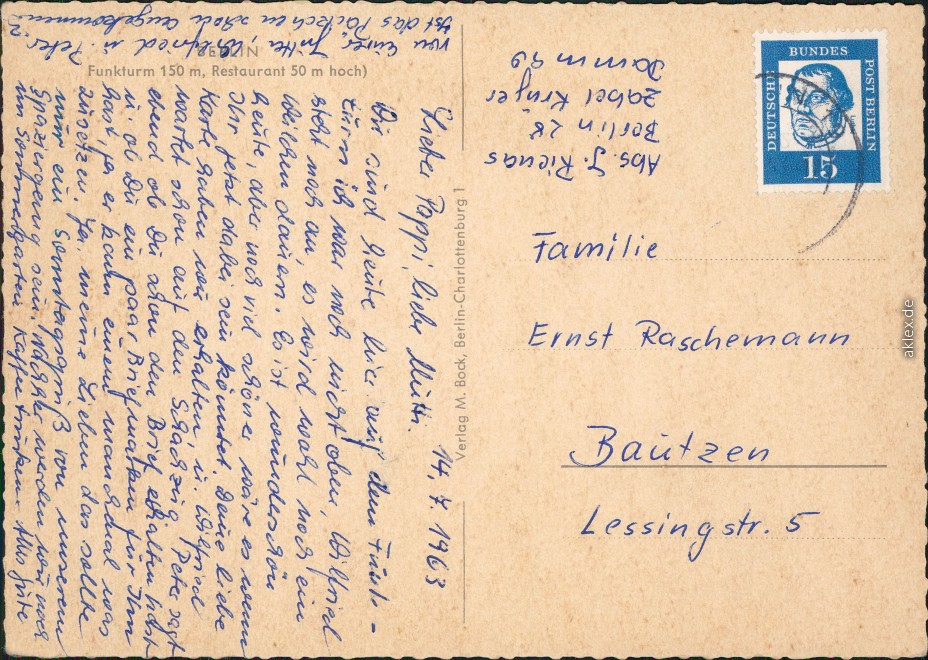 BERLIN
Funkturm 150 m, Restaurant 50 m hoch)
14. 7. 1963
Lieber Pappi, liebe Mutti.
Wir sind heute hier auf dem Funk-
turm ich war noch nicht oben, Wilfried
steht noch an, es wird wohl noch ein
Weilchen dauern. Es ist wunderschön
heute, aber noch viel schöner wäre es wenn
Ihr jetzt dabei sein könntet. Deine liebe
Karte haben wir erhalten, u. Wilfried
wartet schon auf den Peter sagt
ebend ob Du schon den Brief erhalten hast
u. ob Du ein paar Briefmarken für Ihn
hast, ja er kann einem manchmal was
zusetzen. Ja, meine Lieben das sollte
nur ein Sonntagsgruß von unserem
Spaziergang sein. Nachher werden wir noch
im Kaffee trinken. Alles Gute
von Eurer Jutta, Wilfried u. Peter
Ist das Päckchen schon angekommen
Verlag M. Bock, Berlin-Charlottenburg 1
Abs. J. Rienas
Berlin 28.
Zabel Krüger
Damm 39
DEUTSCHE
BUNDES
POST BERLIN
15
Familie
Ernst Raschemann
Bautzen
Lessingstr. 5
aklex.de